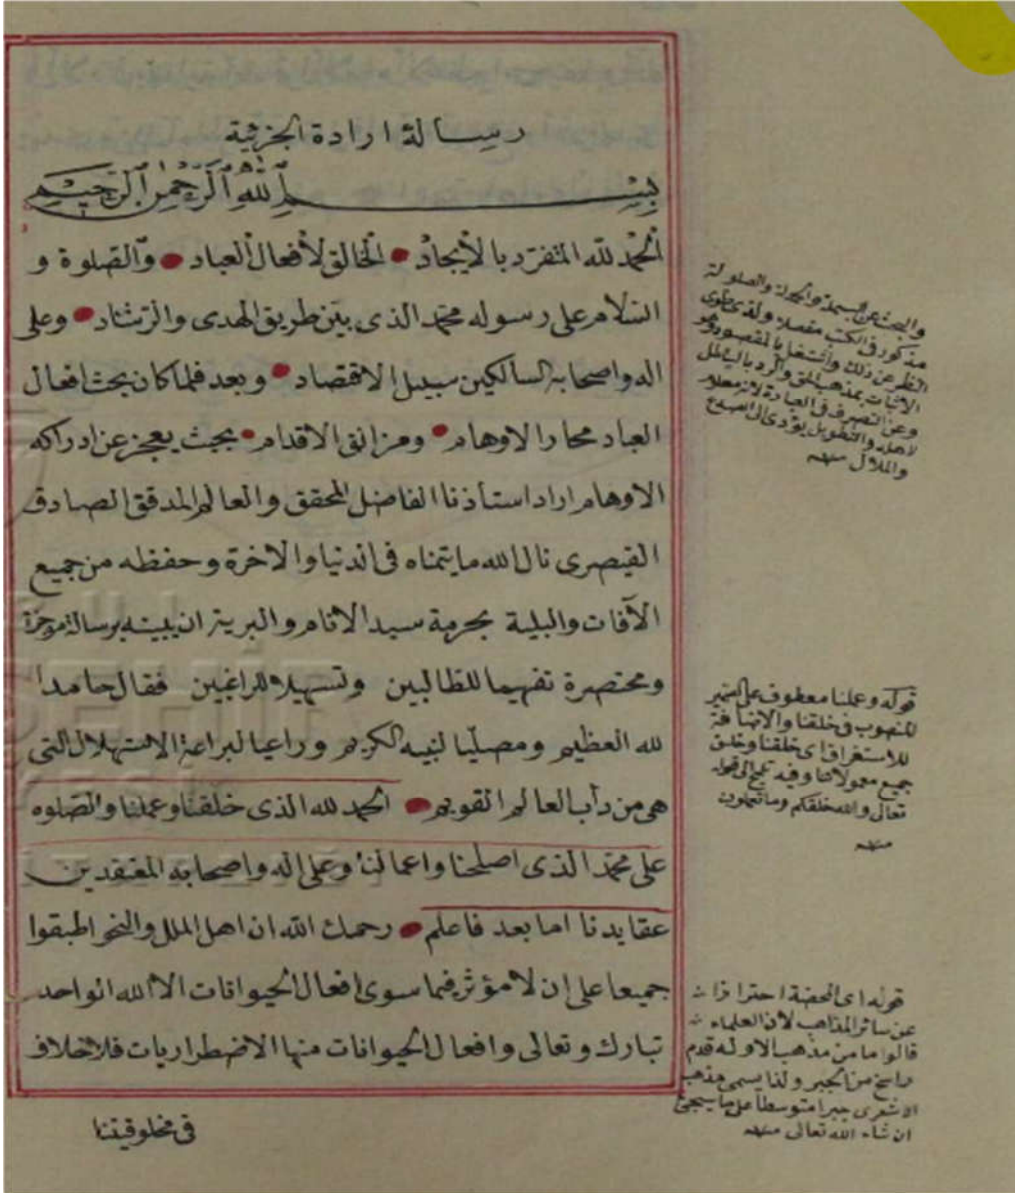 رسالة ارادة الجزئية
بسم الله الرحمن الرحيم
الحمد لله المتفرد بالايجاد • الخالق لأفعال العباد • والصلوة و
السلام على رسوله محمد الذى بيّن طريق الهدى والرشاد • وعلى
اله واصحابه السالكين سبيل الاقتصاد • وبعد فلما كان بحث افعال
العباد محارا الاوهام • ومزالق الاقدام • بحيث يعجز عن ادراكه
الاوهام اراد استاذنا الفاضل المحقق والعالم المدقق الصادق
القيصرى نال الله ما يتمناه فى الدنيا والاخرة وحفظه من جميع
الآفات والبلية بحرمة سيد الانام والبرية ان يبينه برسالة موجزة
ومختصرة تفهيما للطالبين وتسهيلا للراغبين فقال حامدا
لله العظيم ومصليا لنبيه الكريم وراعيا لبراعة الاستهلال التى
هى من دأب العالم القويم • الحمد لله الذى خلقنا وعملنا والصلوه
على محمد الذى اصلحنا واعمالنا وعلى اله واصحابه المعتقدين
عقايدنا اما بعد فاعلم • رحمك الله ان اهل الملل والنحل اطبقوا
جميعا على ان لا مؤثر فيما سوى افعال الحيوانات الا الله الواحد
تبارك وتعالى وافعال الحيوانات منها الاضطراريات فلا خلاف
فى مخلوقيتنا
والبحث عن البسملة والحمدلة والصلولة
مذكور فى الكتب مفصلا ولذى طوى
النظر عن ذلك واشتغل بالمقصود وهو
الاثبات بمذهب الحق والرد بالباطل
وعن التصرف فى العبارة لانه معلوم
لاهله والتطويل يؤدى الى
والملال منه
قوله وعملنا معطوف على الضمير
المنصوب فى خلقنا والاضافة
للاستغراق اى خلقنا وخلق
جميع معمولاتنا وفيه تلميح الى قوله
تعالى والله خلقكم وما تعملون
منه
قوله اى المحضة احترازا
عن سائر المذاهب لان العلماء
قالوا ما من مذهب الا وله قدم
راسخ من الجبر ولذا يسمى مذهب
الاشعرى جبرا متوسطا على ما سيجئ
ان شاء الله تعالى منه